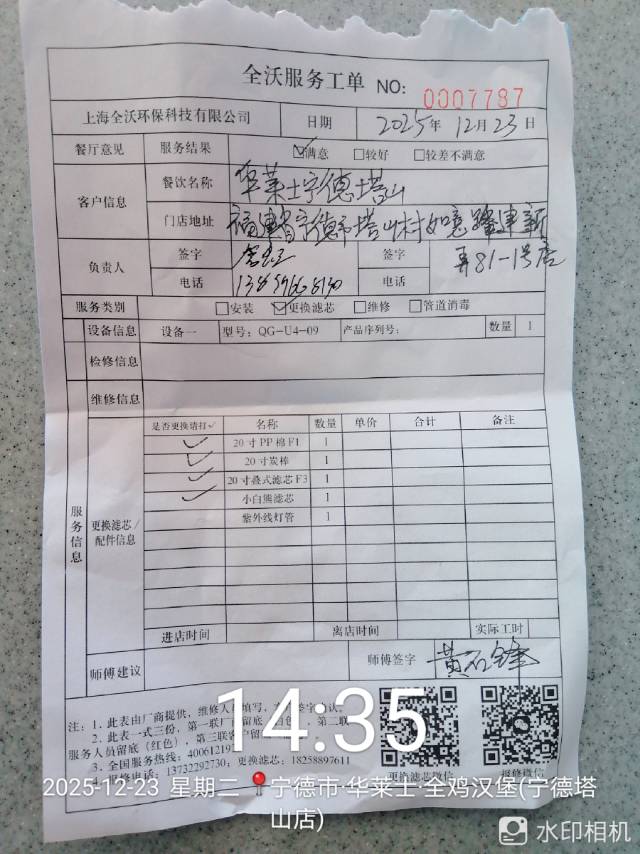 全沃服务工单 NO: 0007787
上海全沃环保科技有限公司 日期 2025年12月23日
餐厅意见 服务结果 ☑满意 □较好 □较差不满意
客户信息 餐饮名称 华莱士宁德塔山
门店地址 福建省宁德市塔山村如意路津新
弄81-1号店
负责人 签字 签字
电话 电话
服务类别 □安装 ☑更换滤芯 □维修 □管道消毒
设备信息 设备一 型号: QG-U4-09 产品序列号: 数量 1
检修信息
维修信息
服务信息
更换滤芯/
配件信息
是否更换请打✓ 名称 数量 单价 合计 备注
✓ 20寸PP棉F1 1
✓ 20寸炭棒 1
✓ 20寸叠式滤芯F3 1
✓ 小白熊滤芯 1
紫外线灯管 1
进店时间 离店时间 实际工时
师傅建议 师傅签字 黄石锋
注: 1. 此表由厂商提供, 维修人员填写,
2. 此表一式三份, 第一联厂商留底 第二联
服务人员留底(红色), 第三联客户留
3. 全国服务热线: 4006121
4. 报修电话: 13732292730; 更换滤芯: 18258897611
更换滤芯微信 报修微信
14:35
2025-12-23 星期二 宁德市·华莱士·全鸡汉堡(宁德塔
山店)
水印相机